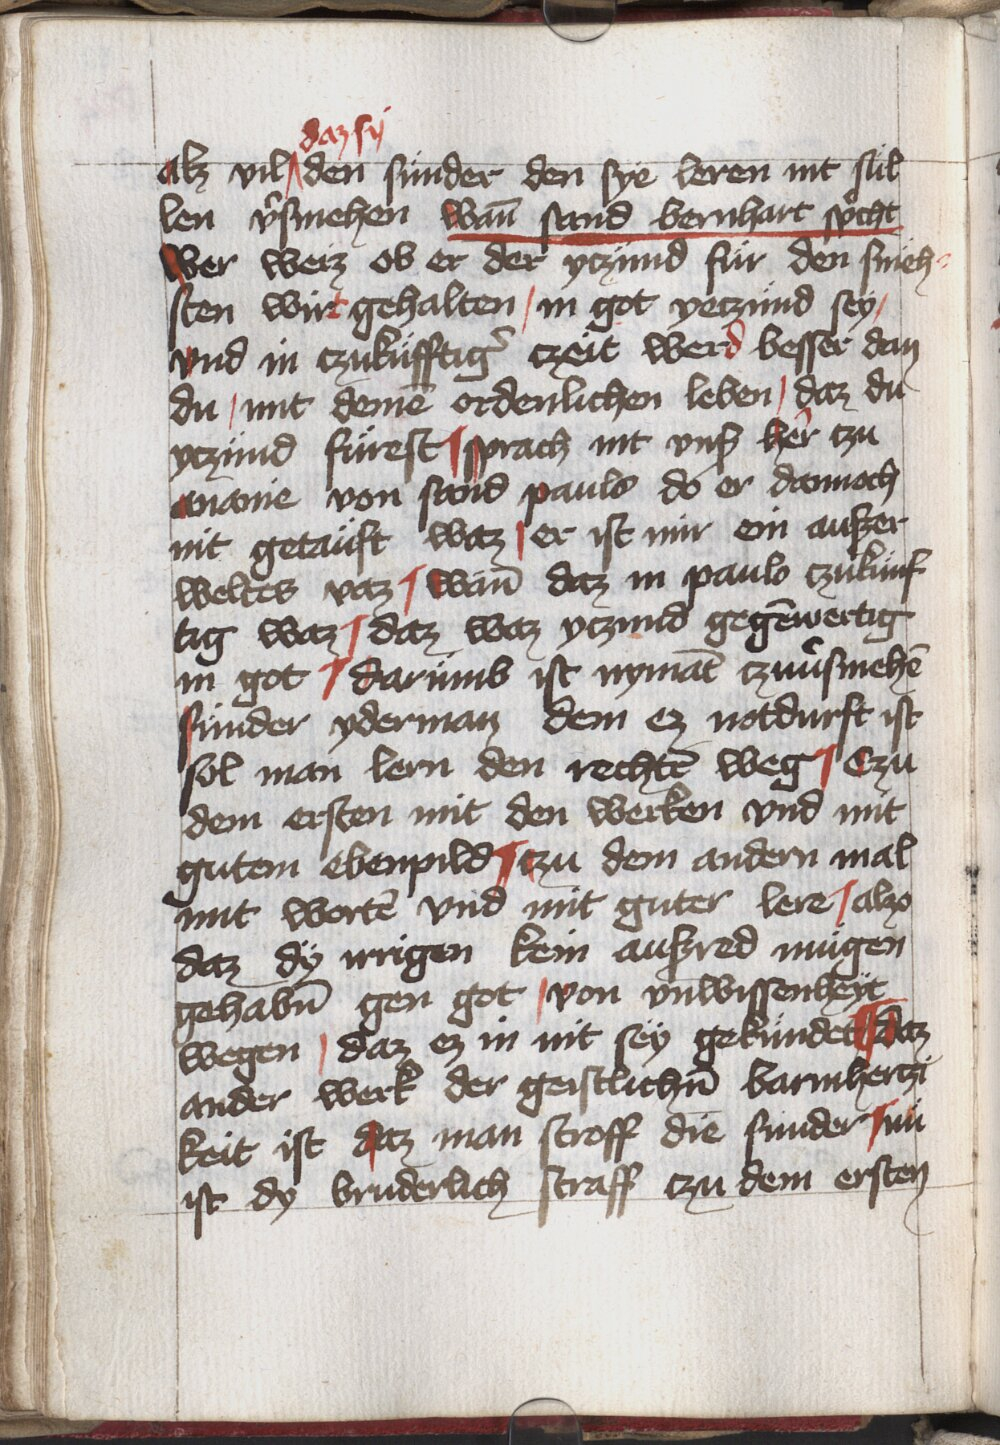 daz sÿ
alz vil den sünder den sye leren nit sül
len v̾smehen wañ sand bernhart spͦcht
wer weiz ob er der yczund für den smeh-
sten wirt gehalten / in got yeczund sey /
vnd in czukufftig᷑ czeit werd besser dan
du / mit deinē ordenlichen leben / daz du
yczund fürest / sprach nit vnß her czu
ananie von sand paulo do er dannoch
nit getauft waz / er ist mir ein außer
weltes vaz / wañ daz in paulo czukünf
tig waz / daz waz yczund gegēwertig
in got / darumb ist nymāt czuv̾smehē
sunder yderman dem ez notdurft ist
sol man lern den rechtē weg / Czu
dem ersten mit den werken vnd mit
gutem ebenpild / czu dem andern mal
mit wortē vnd mit guter lere / also
daz dÿ irrigen kein außred mügen
gehabñ gen got / von vnwissenheyt
wegen / daz ez in nit sey gekündet Daz
ander werk der geistlichñ barmherczi
keit ist daz man stroff die sunder / nü
ist dy bruderlich straff czu dem ersten